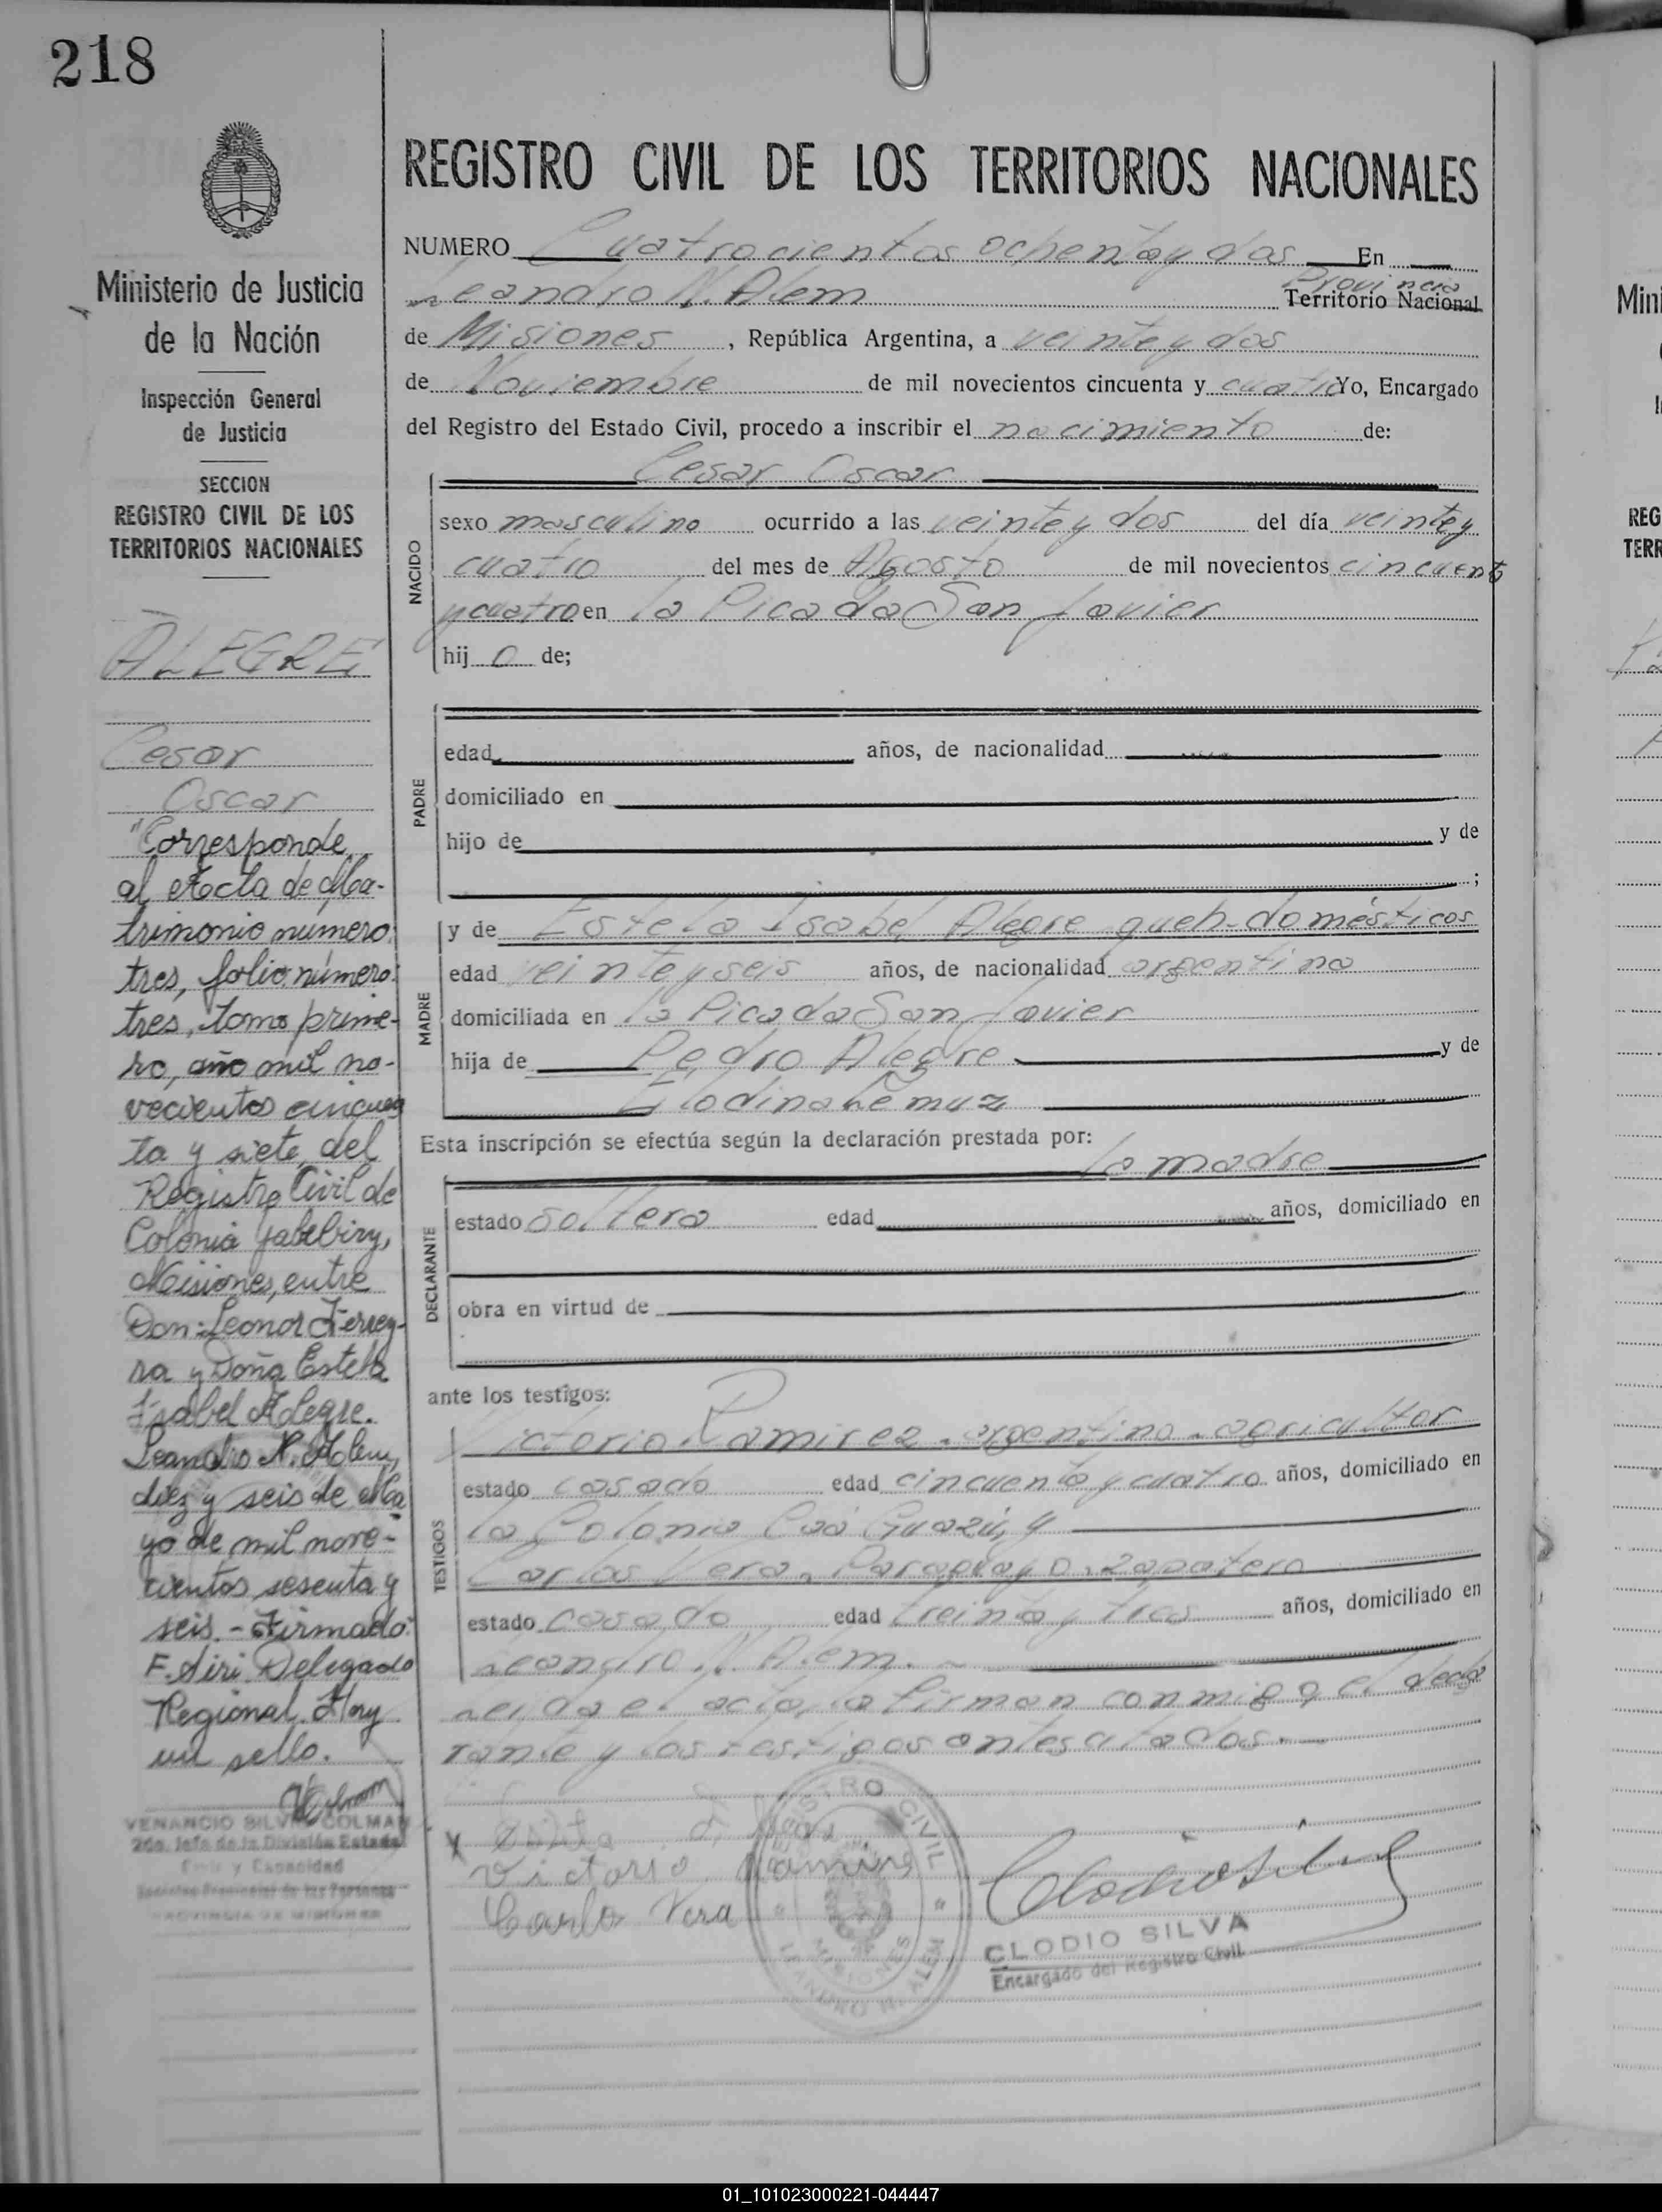 218
Ministerio de Justicia
de la Nación
Inspección General
de Justicia
SECCION
REGISTRO CIVIL DE LOS
TERRITORIOS NACIONALES
ALEGRE
Cesar
Oscar
"Corresponde
al Acta de Ma-
trimonio número
tres, folio número
tres, tomo prime-
ro, año mil no-
vecientos cincuen
ta y siete, del
Registro Civil de
Colonia Yabebiry,
Misiones, entre
Don: Leonor Ferrey-
ra y Doña Estela
Isabel Alegre.
Leandro N. Alem,
diez y seis de Ma
yo de mil nove-
cientos sesenta y
seis. - Firmado:
F. Siri Delegado
Regional. Hay
un sello.
VENANCIO SILVIO COLMAN
2do. Jefe de la División Estado
Civil y Capacidad
Registro Provincial de las Personas
PROVINCIA DE MISIONES
REGISTRO CIVIL DE LOS TERRITORIOS NACIONALES
NUMERO Cuatrocientos ochenta y dos En
Leandro N. Alem Provincia Territorio Nacional
de Misiones , República Argentina, a veinte y dos
de Noviembre de mil novecientos cincuenta y cuatro Yo, Encargado
del Registro del Estado Civil, procedo a inscribir el nacimiento de:
Cesar Oscar
NACIDO
sexo masculino ocurrido a las veinte y dos del día veinte y
cuatro del mes de Agosto de mil novecientos cincuenta
y cuatro en la Picada San Javier
hij o de;
PADRE
edad años, de nacionalidad
domiciliado en
hijo de y de
;
MADRE
y de Estela Isabel Alegre queh-domésticos
edad veinte y seis años, de nacionalidad argentina
domiciliada en la Picada San Javier
hija de Pedro Alegre y de
Elodina Lemuz
Esta inscripción se efectúa según la declaración prestada por:
la madre
DECLARANTE
estado soltera edad años, domiciliado en
obra en virtud de
ante los testigos:
TESTIGOS
Victorio Ramirez - argentino - agricultor
estado casado edad cincuenta y cuatro años, domiciliado en
la Colonia Caá Guazú, y
Carlos Vera, Paraguayo, zapatero
estado casado edad treinta y tres años, domiciliado en
Leandro N. Alem.
Leida el acta, la firman conmigo el decla
rante y los testigos antes citados.
Victorio Ramirez
Carlo Vera
REGISTRO CIVIL
MISIONES
LEANDRO N. ALEM
CLODIO SILVA
Encargado del Registro Civil
Mini
REG
TERR
01_101023000221-044447